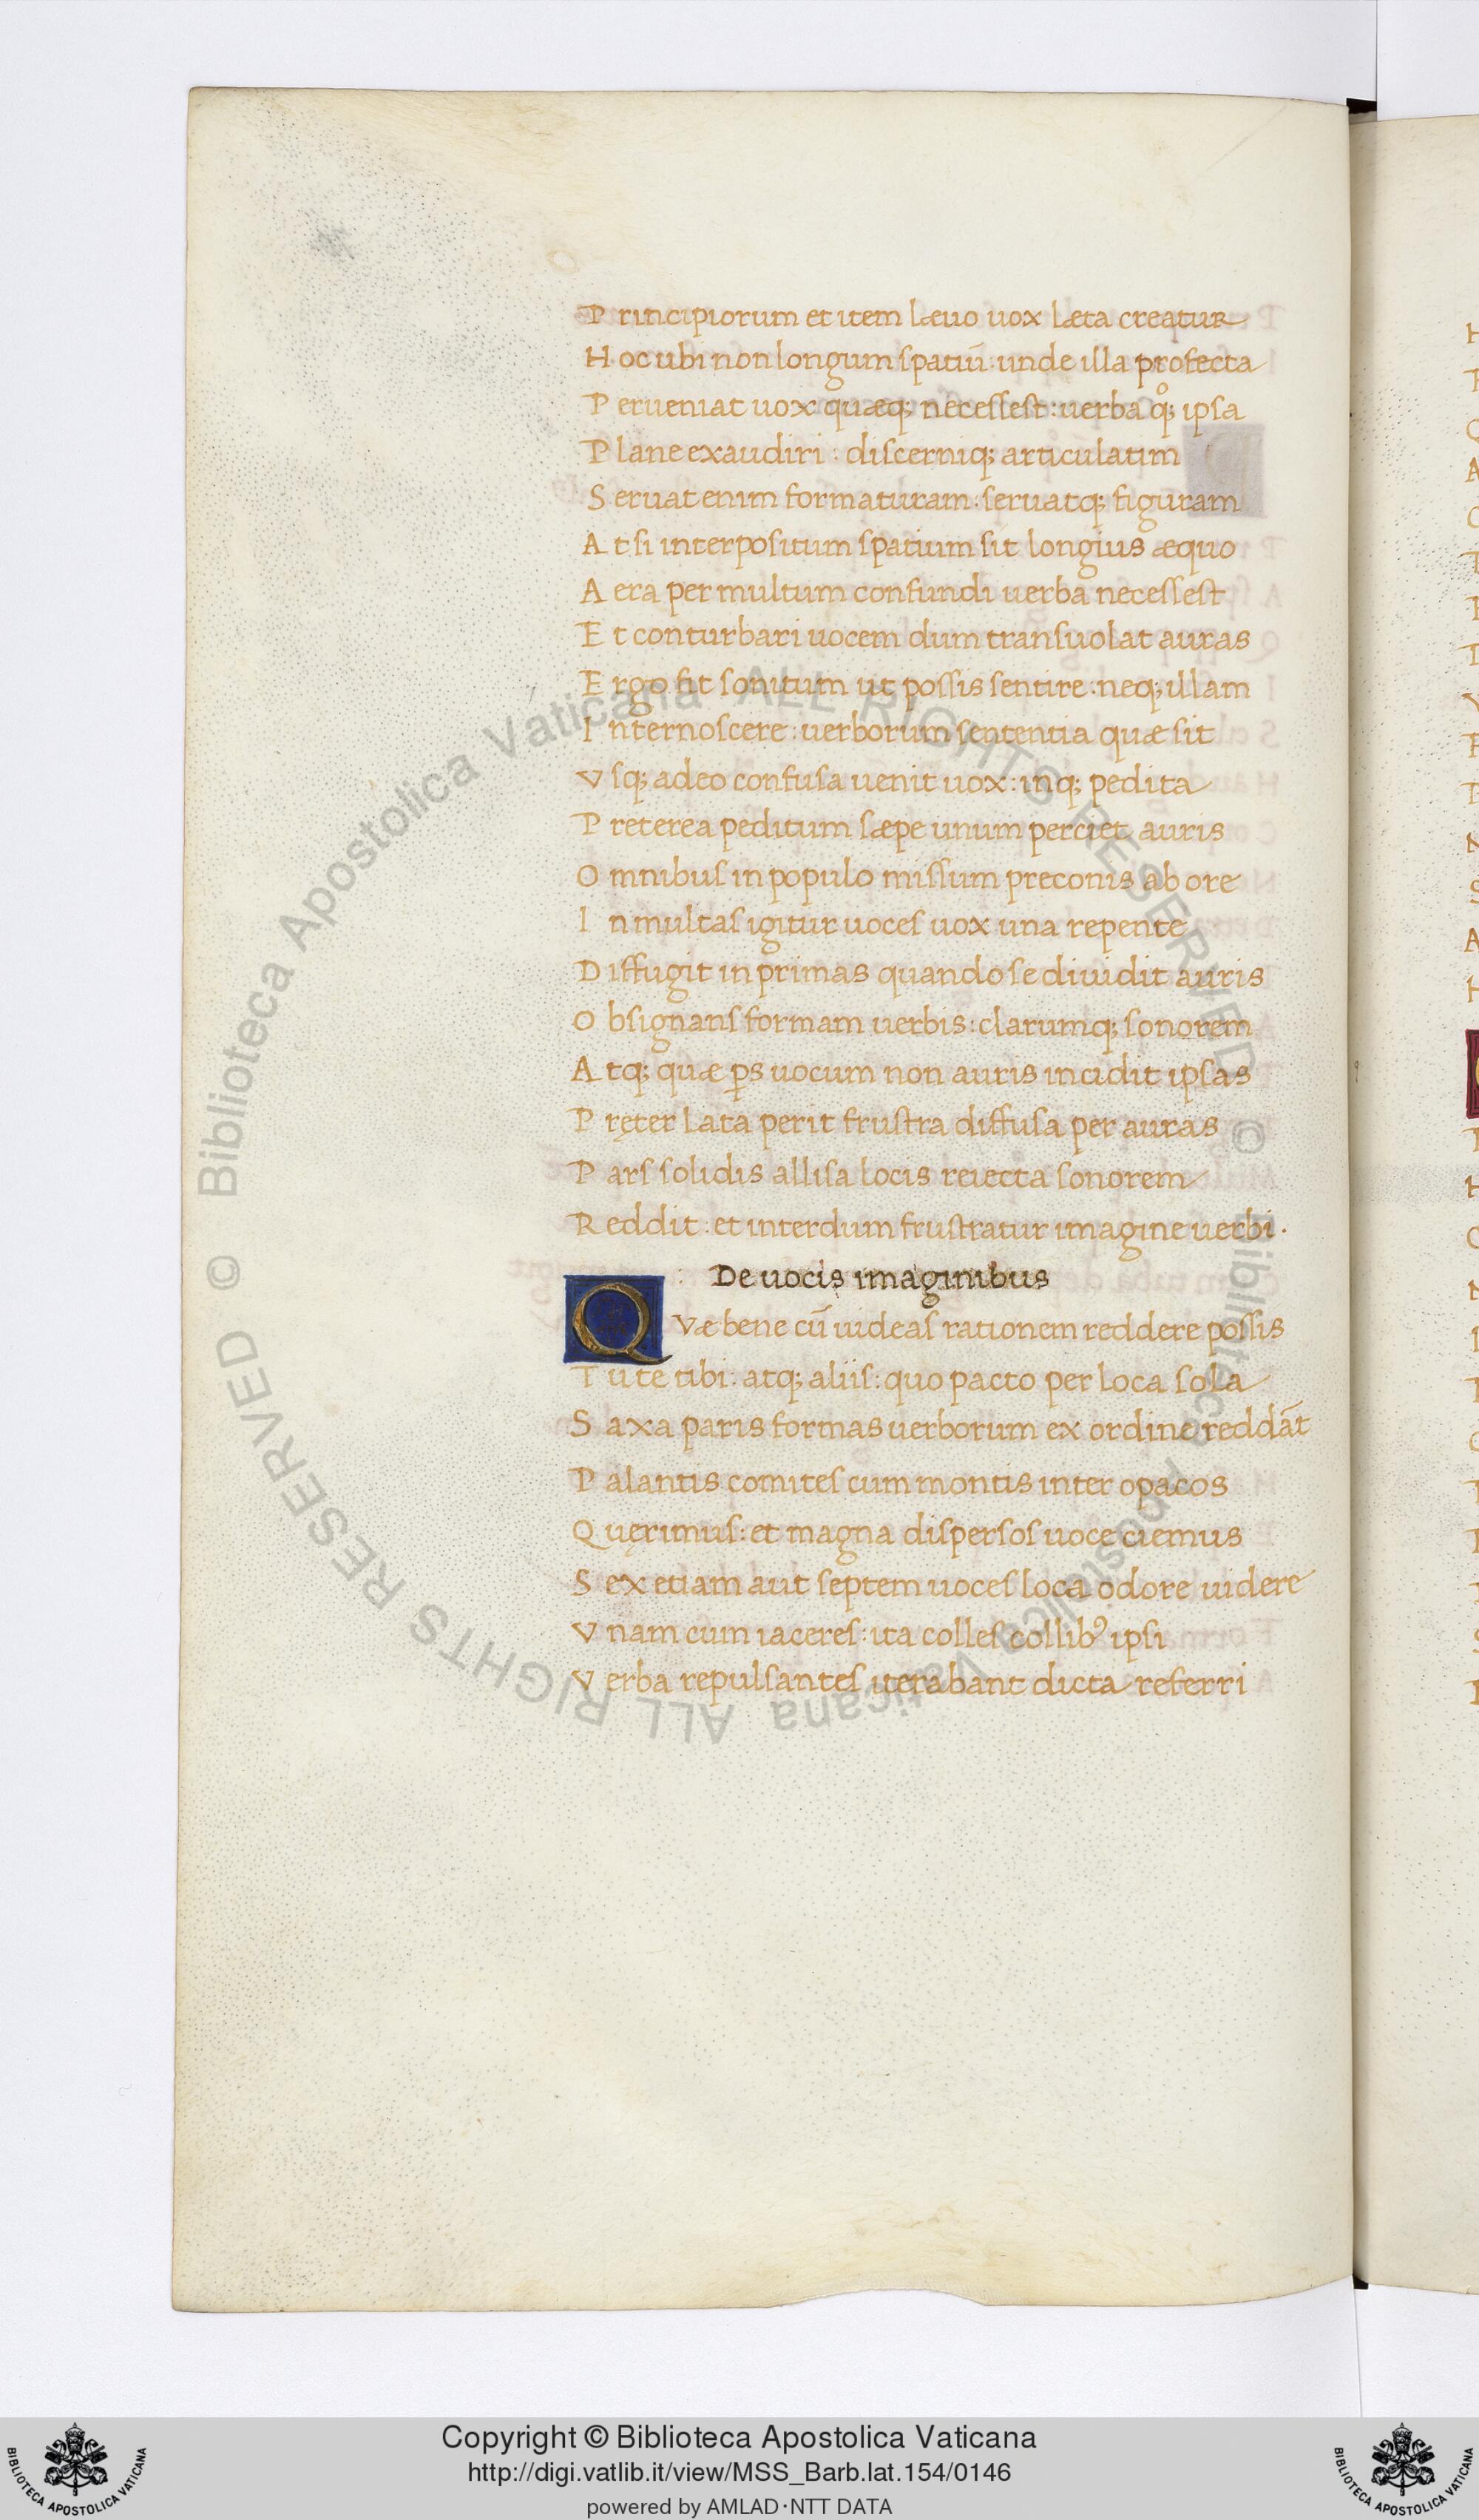 P rincipiorum et item læuo uox læta creatur
H oc ubi non longum spatiū. unde illa profecta
P erueniat uox quæq; necessest: uerba qͦ; ipsa
P lane exaudiri: discerniq; articulatim
S eruat enim formaturam. seruatq; figuram
A t si interpositum spatium sit longius æquo
A era per multum confundi uerba necessest
E t conturbari uocem dum transuolat auras
E rgo fit sonitum ut possis sentire: neq; illam
I nternoscere: uerborum sententia quæ sit
V sq; adeo confusa uenit uox: inq; pedita
P reterea peditum sæpe unum perciet auris
O mnibus in populo missum preconis ab ore
I n multas igitur uoces uox una repente
D iffugit in primas quando se diuidit auris
O bsignans formam uerbis: clarumq; sonorem
A tq; quæ ꝑs uocum non auris incidit ipsas
P ręter lata perit frustra diffusa per auras
P ars solidis allisa locis reiecta sonorem
R eddit: et interdum frustratur imagine uerbi.
De uocis imaginibus
Q Væ bene cū uideas rationem reddere possis
T ute tibi: atq; aliis: quo pacto per loca sola
S axa paris formas uerborum ex ordine reddāt
P alantis comites cum montis inter opacos
Q uęrimus: et magna dispersos uoce ciemus
S ex etiam aut septem uoces loca odore uidere
V nam cum iaceres: ita colles collibꝰ ipsi
V erba repulsantes iterabant dicta referri
© Biblioteca Apostolica Vaticana ALL RIGHTS RESERVED © Biblioteca Apostolica Vaticana ALL RIGHTS RESERVED
Copyright © Biblioteca Apostolica Vaticana
http://digi.vatlib.it/view/MSS_Barb.lat.154/0146
powered by AMLAD·NTT DATA
BIBLIOTECA APOSTOLICA VATICANA
BIBLIOTECA APOSTOLICA VATICANA